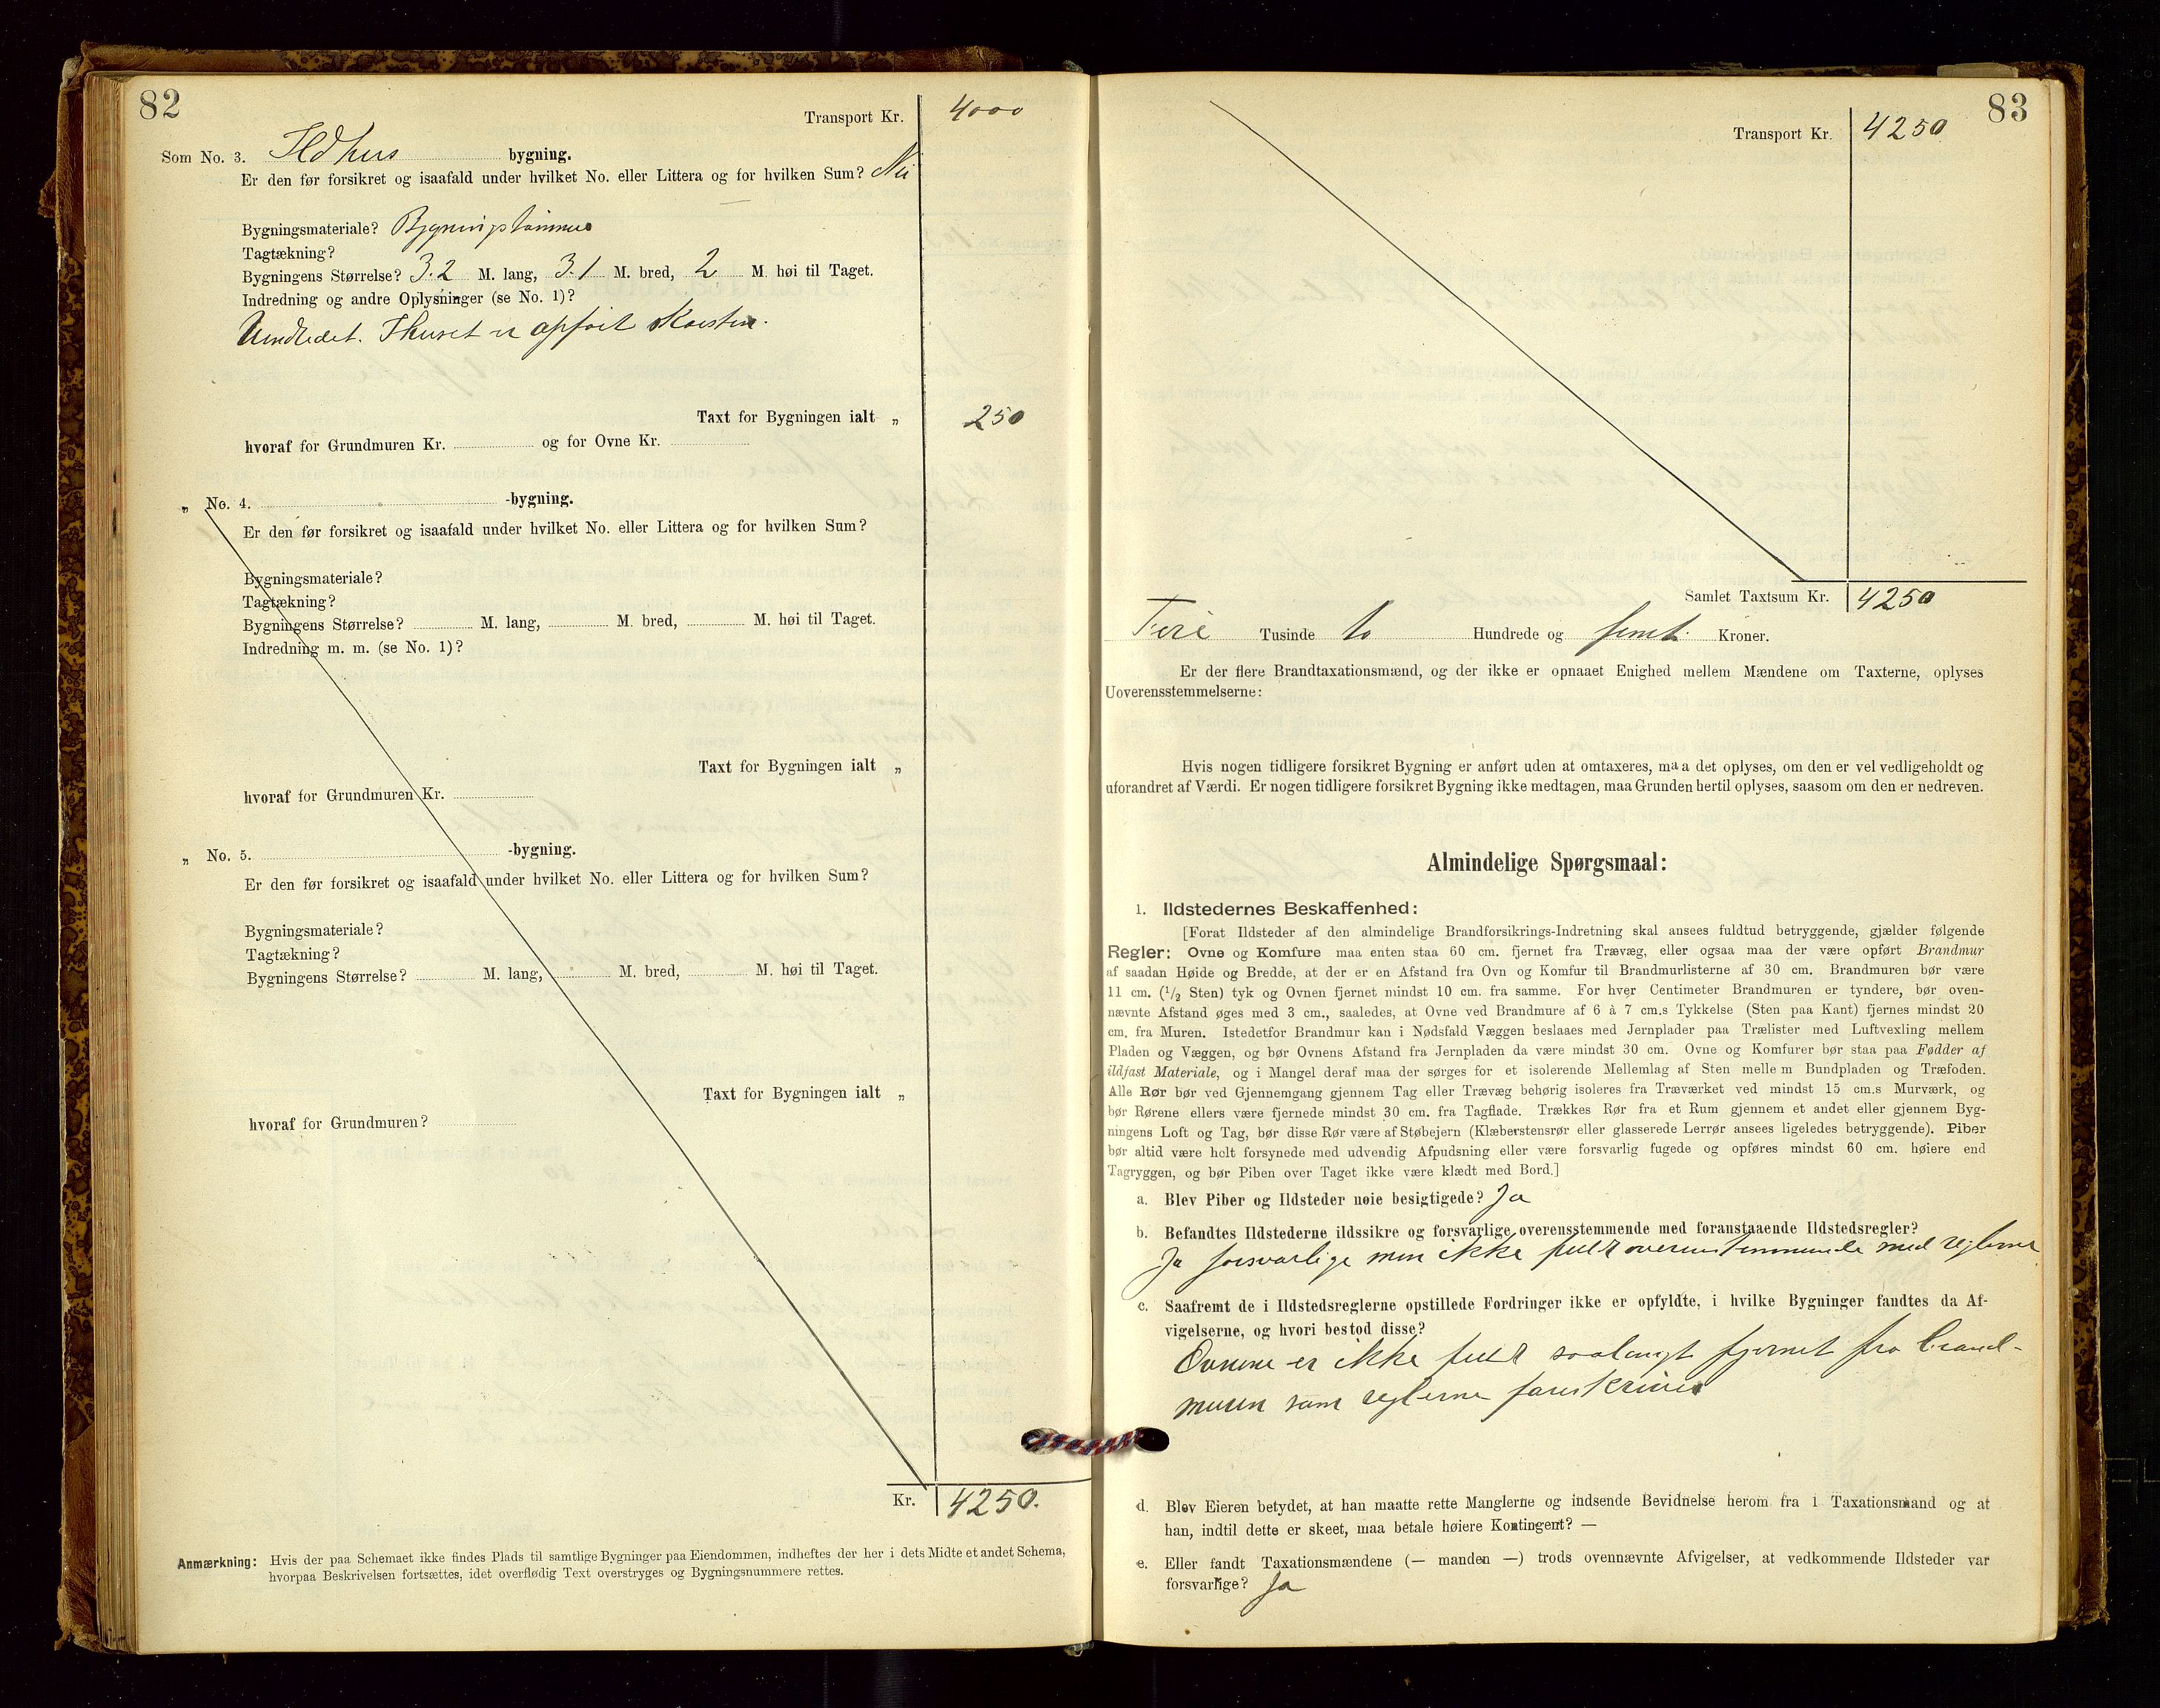 82
Transport Kr. 4000
Som No. 3. Ildhus bygning.
Er den før forsikret og isaafald under hvilket No. eller Littera og for hvilken Sum? Nei
Bygningsmateriale? Bygningstømmer
Tagtækning?
Bygningens Størrelse? 3.2 M. lang, 3.1 M. bred, 2 M. høi til Taget.
Indredning og andre Oplysninger (se No. 1)?
Uindredet. I huset er opført skorsten.
Taxt for Bygningen ialt „ 250
hvoraf for Grundmuren Kr. og for Ovne Kr.
„ No. 4. -bygning.
Er den før forsikret og isaafald under hvilket No. eller Littera og for hvilken Sum?
Bygningsmateriale?
Tagtækning?
Bygningens Størrelse? M. lang, M. bred, M. høi til Taget.
Indredning m. m. (se No. 1)?
Taxt for Bygningen ialt „
hvoraf for Grundmuren Kr.
„ No. 5. -bygning.
Er den før forsikret og isaafald under hvilket No. eller Littera og for hvilken Sum?
Bygningsmateriale?
Tagtækning?
Bygningens Størrelse? M. lang, M. bred, M. høi til Taget.
Taxt for Bygningen ialt „
hvoraf for Grundmuren?
Kr. 4250.
Anmærkning: Hvis der paa Schemaet ikke findes Plads til samtlige Bygninger paa Eiendommen, indheftes der her i dets Midte et andet Schema,
hvorpaa Beskrivelsen fortsættes, idet overflødig Text overstryges og Bygningsnummere rettes.
83
Transport Kr. 4250
Samlet Taxtsum Kr. 4250
Fire Tusinde to Hundrede og femti Kroner.
Er der flere Brandtaxationsmænd, og der ikke er opnaaet Enighed mellem Mændene om Taxterne, oplyses
Uoverensstemmelserne:
Hvis nogen tidligere forsikret Bygning er anført uden at omtaxeres, maa det oplyses, om den er vel vedligeholdt og
uforandret af Værdi. Er nogen tidligere forsikret Bygning ikke medtagen, maa Grunden hertil oplyses, saasom om den er nedreven.
Almindelige Spørgsmaal:
1. Ildstedernes Beskaffenhed:
[Forat Ildsteder af den almindelige Brandforsikrings-Indretning skal ansees fuldtud betryggende, gjælder følgende
Regler: Ovne og Komfure maa enten staa 60 cm. fjernet fra Trævæg, eller ogsaa maa der være opført Brandmur
af saadan Høide og Bredde, at der er en Afstand fra Ovn og Komfur til Brandmurlisterne af 30 cm. Brandmuren bør være
11 cm. (1/2 Sten) tyk og Ovnen fjernet mindst 10 cm. fra samme. For hver Centimeter Brandmuren er tyndere, bør oven-
nævnte Afstand øges med 3 cm., saaledes, at Ovne ved Brandmure af 6 à 7 cm.s Tykkelse (Sten paa Kant) fjernes mindst 20
cm. fra Muren. Istedetfor Brandmur kan i Nødsfald Væggen beslaaes med Jernplader paa Trælister med Luftvexling mellem
Pladen og Væggen, og bør Ovnens Afstand fra Jernpladen da være mindst 30 cm. Ovne og Komfurer bør staa paa Fødder af
ildfast Materiale, og i Mangel deraf maa der sørges for et isolerende Mellemlag af Sten mellem Bundpladen og Træfoden.
Alle Rør bør ved Gjennemgang gjennem Tag eller Trævæg behørig isoleres fra Træværket ved mindst 15 cm.s Murværk, og
bør Rørene ellers være fjernede mindst 30 cm. fra Tagflade. Trækkes Rør fra et Rum gjennem et andet eller gjennem Byg-
ningens Loft og Tag, bør disse Rør være af Støbejern (Klæberstensrør eller glasserede Lerrør ansees ligeledes betryggende). Piber
bør altid være helt forsynede med udvendig Afpudsning eller være forsvarlig fugede og opføres mindst 60 cm. høiere end
Tagryggen, og bør Piben over Taget ikke være klædt med Bord.]
a. Blev Piber og Ildsteder nøie besigtigede? Ja
b. Befandtes Ildstederne ildssikre og forsvarlige overensstemmende med foranstaaende Ildstedsregler?
Ja forsvarlige men ikke fuldt overenstemmende med reglerne
c. Saafremt de i Ildstedsreglerne opstillede Fordringer ikke er opfyldte, i hvilke Bygninger fandtes da Af-
vigelserne, og hvori bestod disse?
Ovnene er ikke fuldt saalangt fjernet fra brand-
muren som reglerne foreskriver
d. Blev Eieren betydet, at han maatte rette Manglerne og indsende Bevidnelse herom fra 1 Taxationsmand og at
han, indtil dette er skeet, maa betale høiere Kontingent? —
e. Eller fandt Taxationsmændene (— manden —) trods ovennævnte Afvigelser, at vedkommende Ildsteder var
forsvarlige? Ja